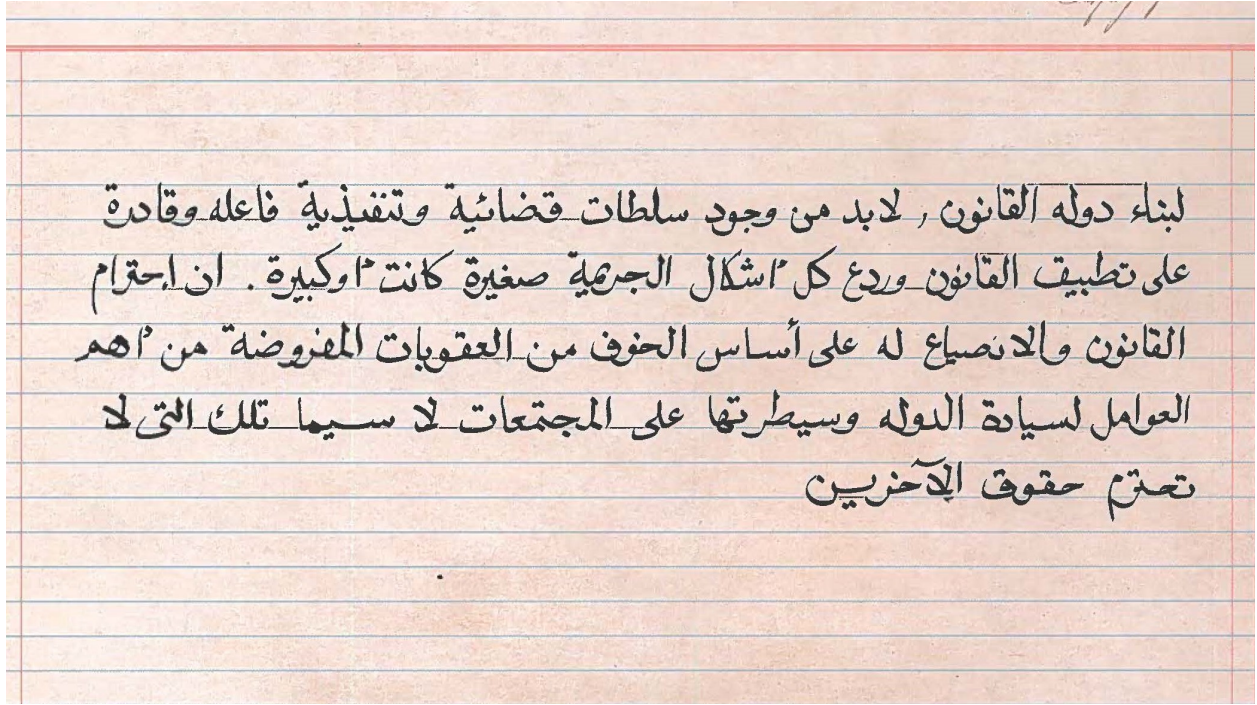 لبناء دوله القانون , لابد من وجود سلطات قضائية وتنفيذية فاعله وقادرة
على تطبيق القانون وردع كل أشكال الجريمة صغيرة كانت أوكبيرة . ان إحترام
القانون والانصياع له على أساس الخوف من العقوبات المفروضة من أهم
العوامل لسيادة الدوله وسيطرتها على المجتمعات لا سيما تلك التي لا
تحترم حقوق الآخرين